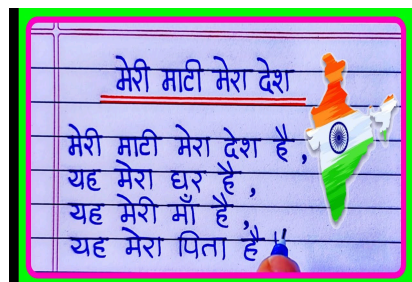 मेरी माटी मेरा देश
मेरी माटी मेरा देश है,
यह मेरा घर है,
यह मेरी माँ है,
यह मेरा पिता है"